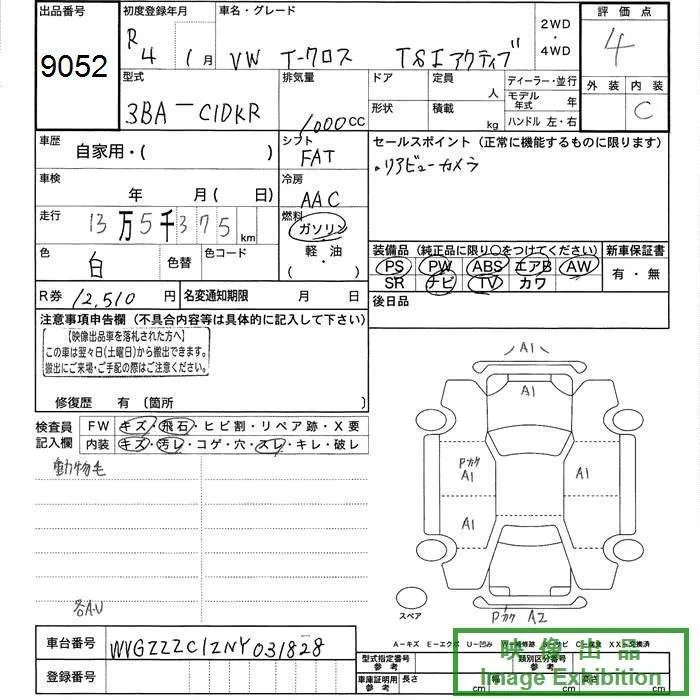 出品番号
9052
初度登録年月
R 4年 1月
車名・グレード
VW T-クロス TSI アクティブ
2WD
・
4WD
評価点
4
外装 内装
C
型式
3BA-C1DKR
排気量
1000CC
ドア
形状
定員 人
積載 kg
ディーラー・並行
モデル年式 年
ハンドル 左・右
車歴
自家用・( )
シフト
FAT
セールスポイント(正常に機能するものに限ります)
・リアビューカメラ
車検
年 月( 日)
冷房
AAC
走行
13万5千375km
燃料
ガソリン
・
軽・油
( ・ )
色
白
色替
色コード
装備品(純正品に限り〇をつけてください)
PS PW ABS エアB AW
SR ナビ TV カワ
新車保証書
有・無
R券 12,510円
名変通知期限 月 日
後日品
注意事項申告欄(不具合内容等は具体的に記入して下さい)
【映像出品車を落札された方へ】
この車は翌々日(土曜日)から搬出できます。
搬出にご来場・ご手配の際はご注意ください。
修復歴 有〔箇所
検査員
記入欄
FW キズ・飛石・ヒビ割・リペア跡・X要
内装 キズ・汚レ・コゲ・穴・スレ・キレ・破レ
動物毛
各A.U
A1
A1
Pカケ
A1
A1
A1
Pカケ A2
スペア
車台番号
WVGZZZC1ZNY031828
登録番号
A-キズ E-エクボ U-凹み
型式指定番号
参考
類別区分番号
参考
車庫証明用
参考
長さ cm
幅 cm
高さ cm
映像出品
Image Exhibition